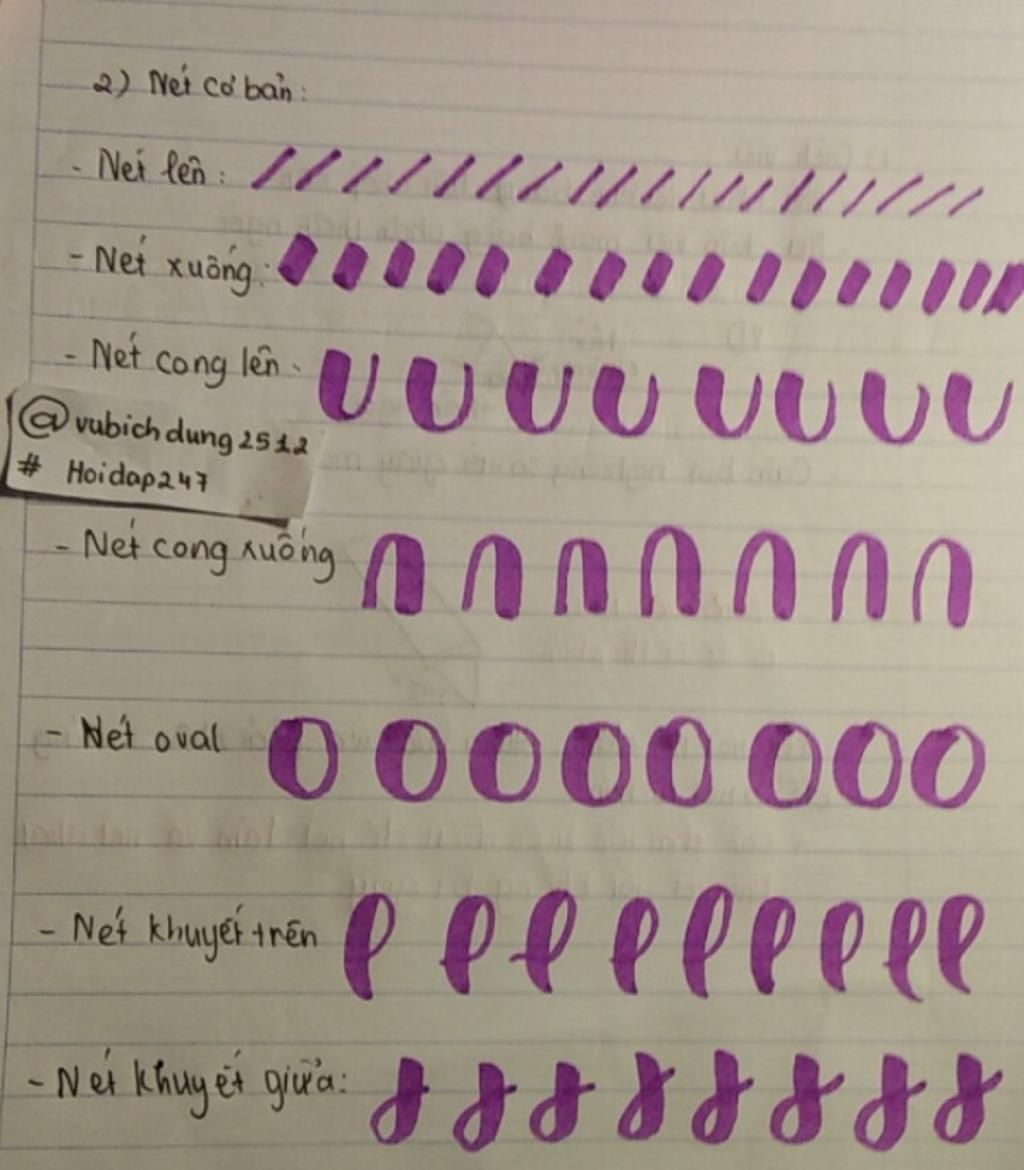 2) Nét cơ bản:
- Nét lên:
- Nét xuống:
- Nét cong lên
@vubichdung2512
# Hoidap247
- Nét cong xuống
- Nét oval
- Nét khuyết trên
- Nét khuyết giữa: